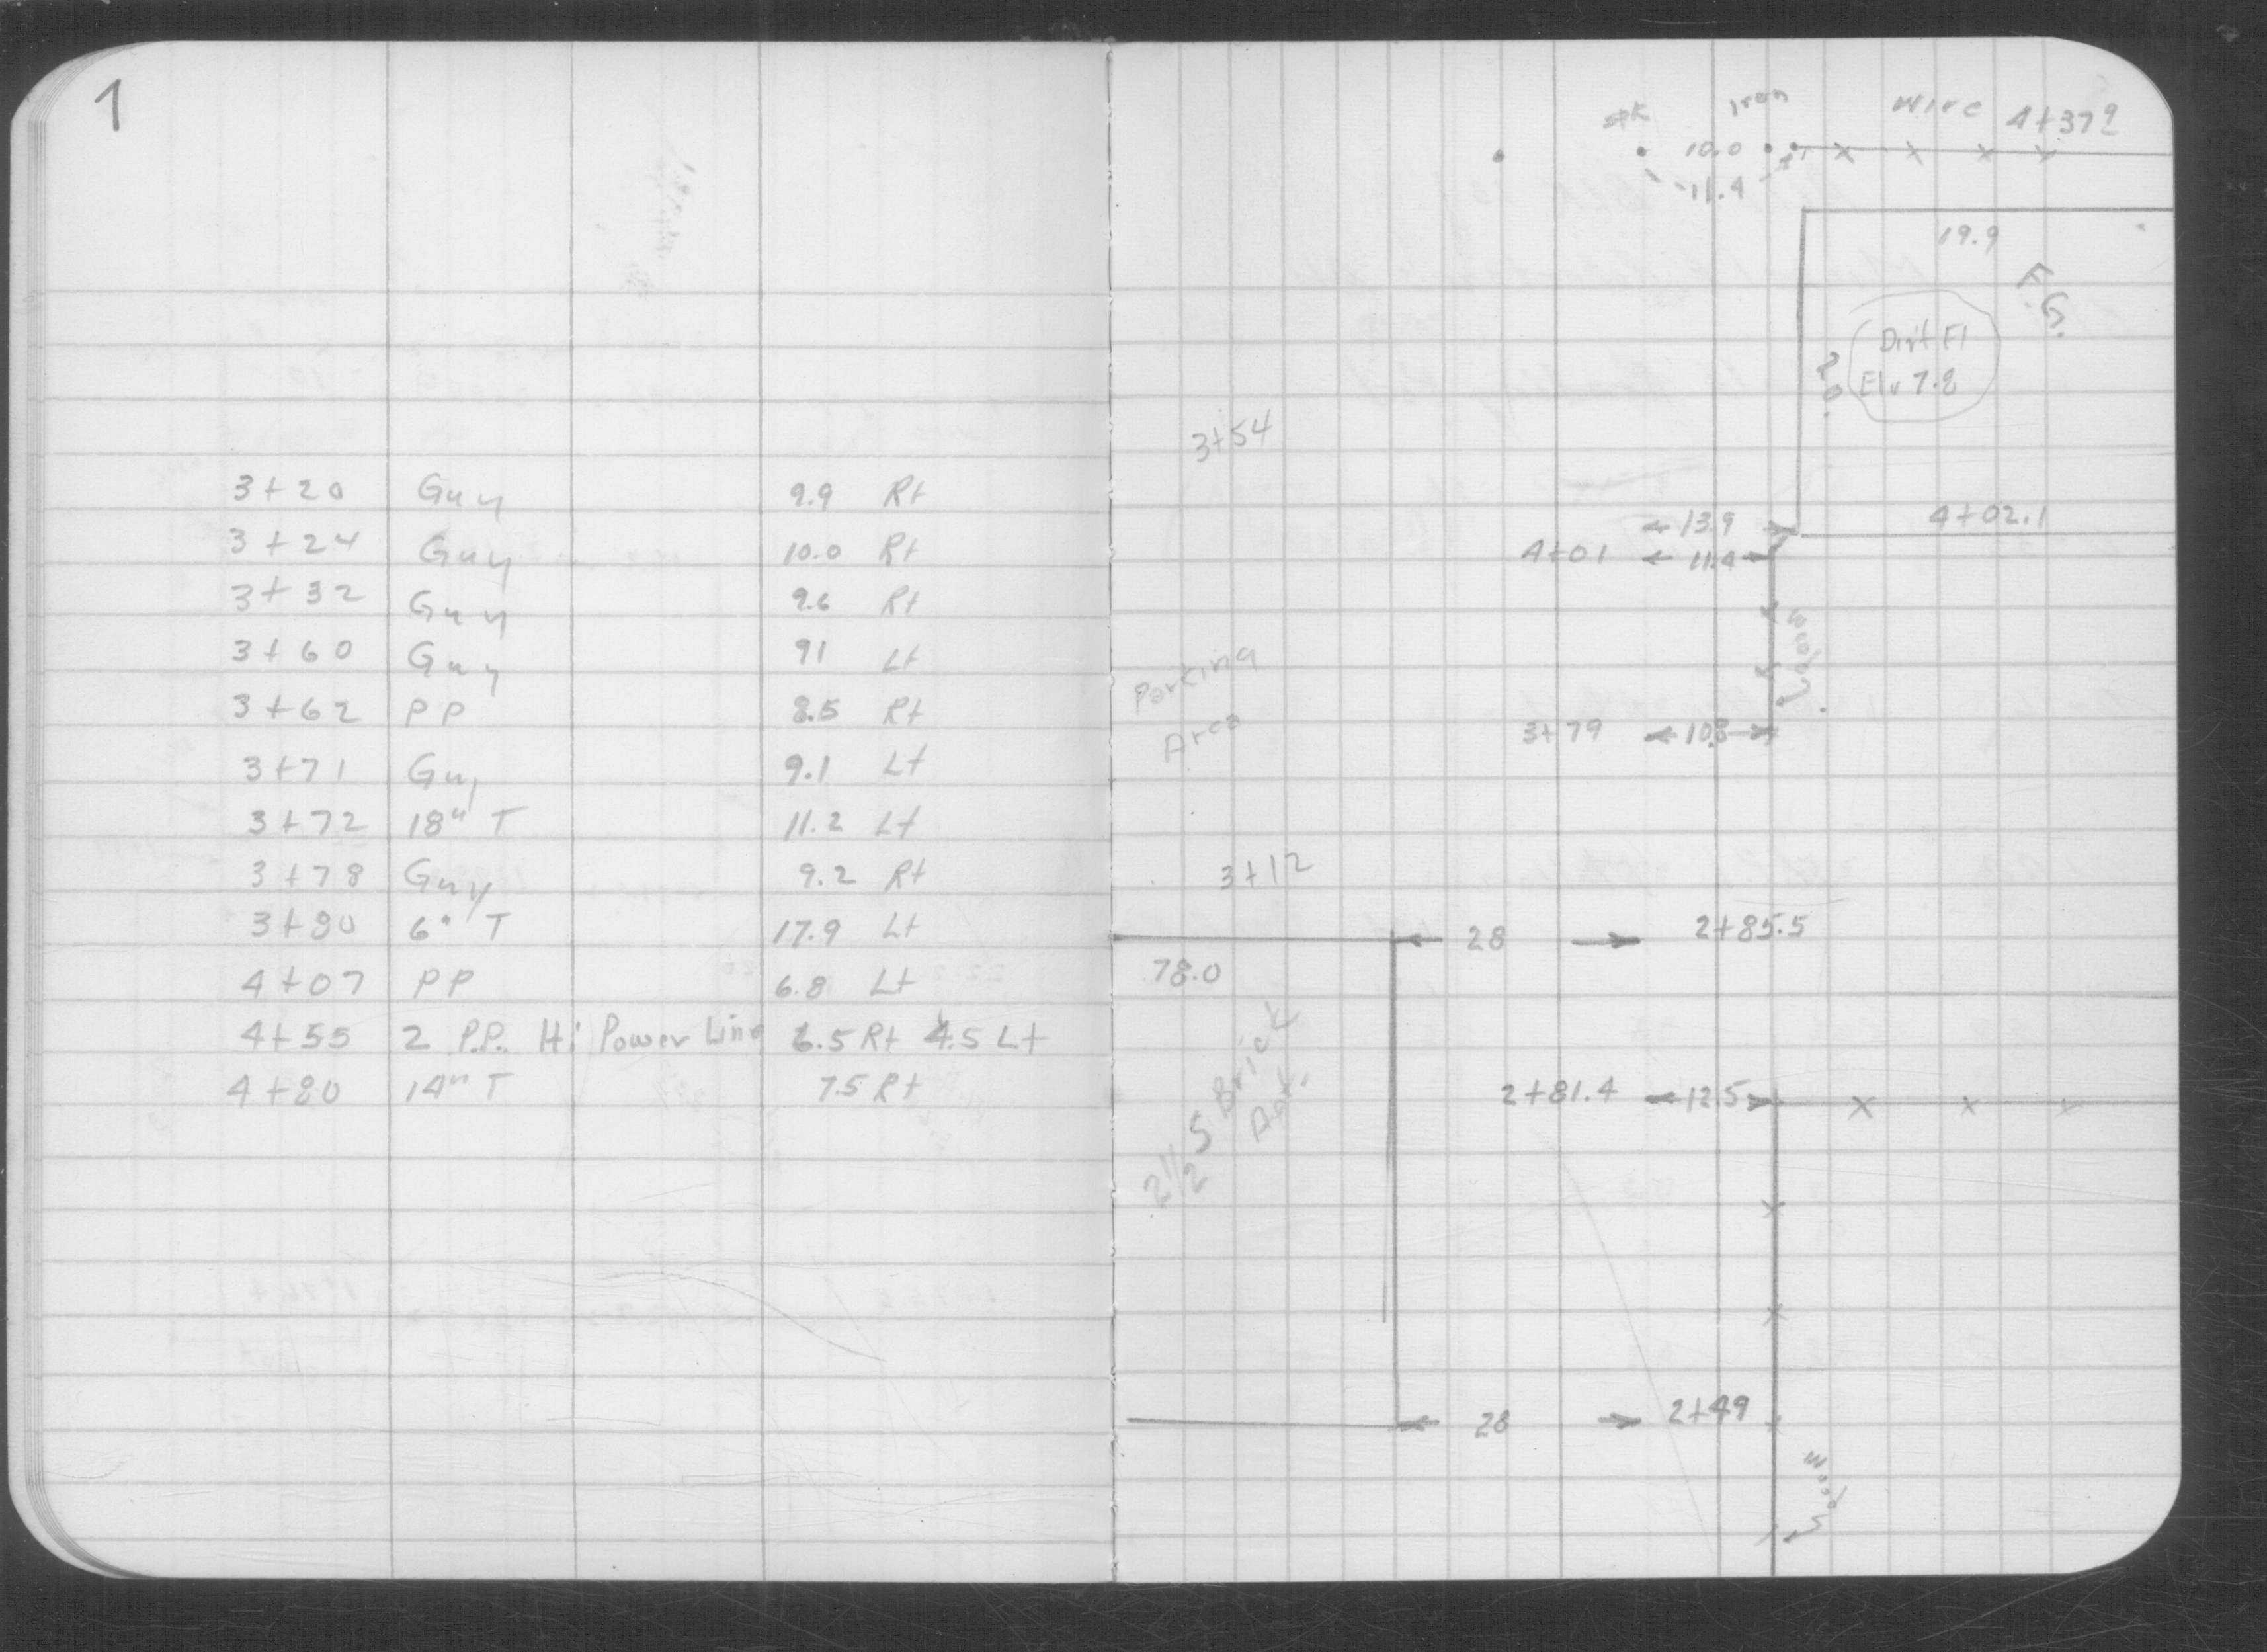 1
3+20 Guy 9.9 Rt
3+24 Guy 10.0 Rt
3+32 Guy 9.6 Rt
3+60 Guy 91 Lt
3+62 PP 8.5 Rt
3+71 Guy 9.1 Lt
3+72 18" T 11.2 Lt
3+78 Guy 9.2 Rt
3+80 6" T 17.9 Lt
4+07 PP 6.8 Lt
4+55 2 P.P. Hi Power Line 6.5 Rt 4.5 Lt
4+80 14" T 7.5 Rt
Iron
Wire 4+37
10.0
11.4
19.9
F.G.
Dirt Fl
Elv 7.8
20.
3+54
13.9
4+02.1
4+01 11.4
Wood
Parking
Area
3+79 10.8
3+12
28 2+85.5
78.0
2 1/2 S Brick
Apt.
2+81.4 12.5
28 2+49
Wood